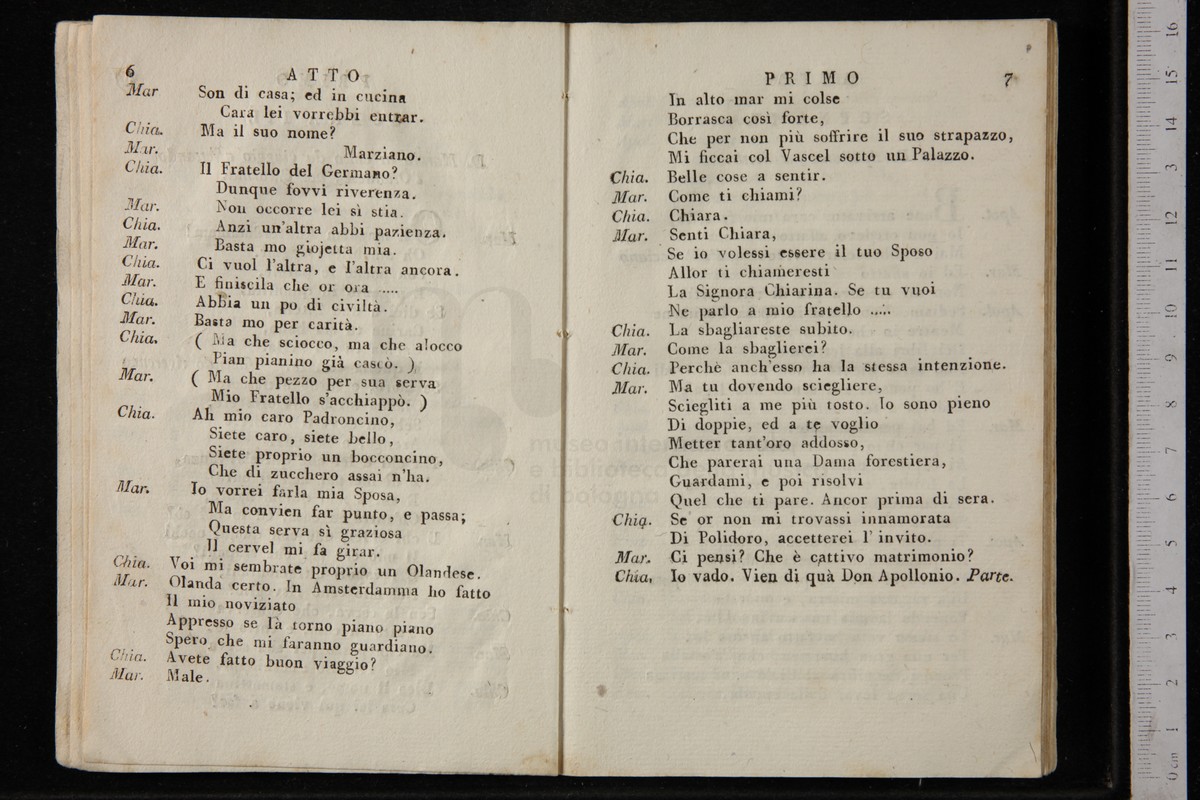 6 ATTO
Mar Son di casa; ed in cucina
Cara lei vorrebbi entrar.
Chia. Ma il suo nome?
Mar. Marziano.
Chia. Il Fratello del Germano?
Dunque fovvi riverenza.
Mar. Non occorre lei sì stia.
Chia. Anzi un'altra abbi pazienza.
Mar. Basta mo giojetta mia.
Chia. Ci vuol l'altra, e l'altra ancora.
Mar. E finiscila che or ora .....
Chia. Abbia un po di civiltà.
Mar. Basta mo per carità.
Chia. ( Ma che sciocco, ma che alocco
Pian pianino già cascò. )
Mar. ( Ma che pezzo per sua serva
Mio Fratello s'acchiappò. )
Chia. Ah mio caro Padroncino,
Siete caro, siete bello,
Siete proprio un bocconcino,
Che di zucchero assai n'ha.
Mar. Io vorrei farla mia Sposa,
Ma convien far punto, e passa;
Questa serva sì graziosa
Il cervel mi fa girar.
Chia. Voi mi sembrate proprio un Olandese.
Mar. Olanda certo. In Amsterdamma ho fatto
Il mio noviziato
Appresso se là torno piano piano
Spero che mi faranno guardiano.
Chia. Avete fatto buon viaggio?
Mar. Male.
PRIMO 7
In alto mar mi colse
Borrasca così forte,
Che per non più soffrire il suo strapazzo,
Mi ficcai col Vascel sotto un Palazzo.
Chia. Belle cose a sentir.
Mar. Come ti chiami?
Chia. Chiara.
Mar. Senti Chiara,
Se io volessi essere il tuo Sposo
Allor ti chiameresti
La Signora Chiarina. Se tu vuoi
Ne parlo a mio fratello .....
Chia. La sbagliareste subito.
Mar. Come la sbaglierei?
Chia. Perchè anch'esso ha la stessa intenzione.
Mar. Ma tu dovendo sciegliere,
Sciegliti a me più tosto. Io sono pieno
Di doppie, ed a te voglio
Metter tant'oro addosso,
Che parerai una Dama forestiera,
Guardami, e poi risolvi
Quel che ti pare. Ancor prima di sera.
Chia. Se or non mi trovassi innamorata
Di Polidoro, accetterei l'invito.
Mar. Ci pensi? Che è cattivo matrimonio?
Chia. Io vado. Vien di quà Don Apollonio. Parte.